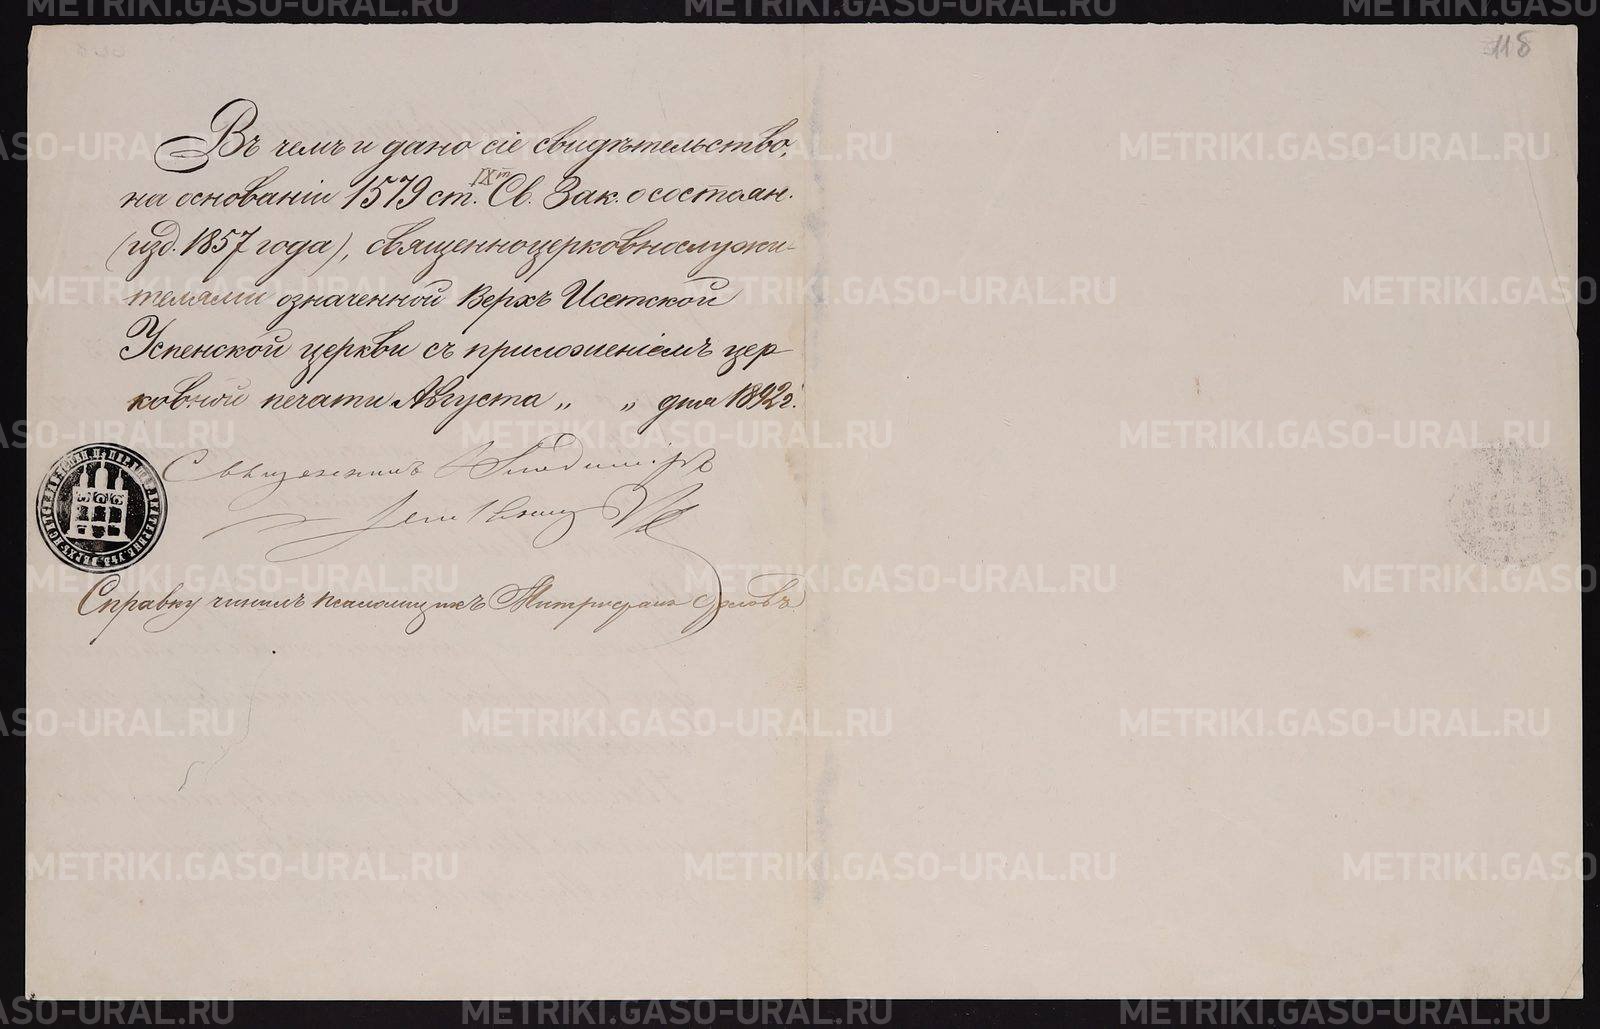 118
Въ чемъ и дано сіе свидѣтельство,
на основаніи 1579 ст. IXт. Св. Зак. о состоян.
(изд. 1857 года), священноцерковнослужи-
телями означенной Верхъ Исетской
Успенской церкви съ приложеніемъ цер
ковной печати Августа „ „ дня 1892 г.
Священникъ Владиміръ
Справку чинилъ псаломщикъ Митрофанъ
METRIKI.GASO-URAL.RU